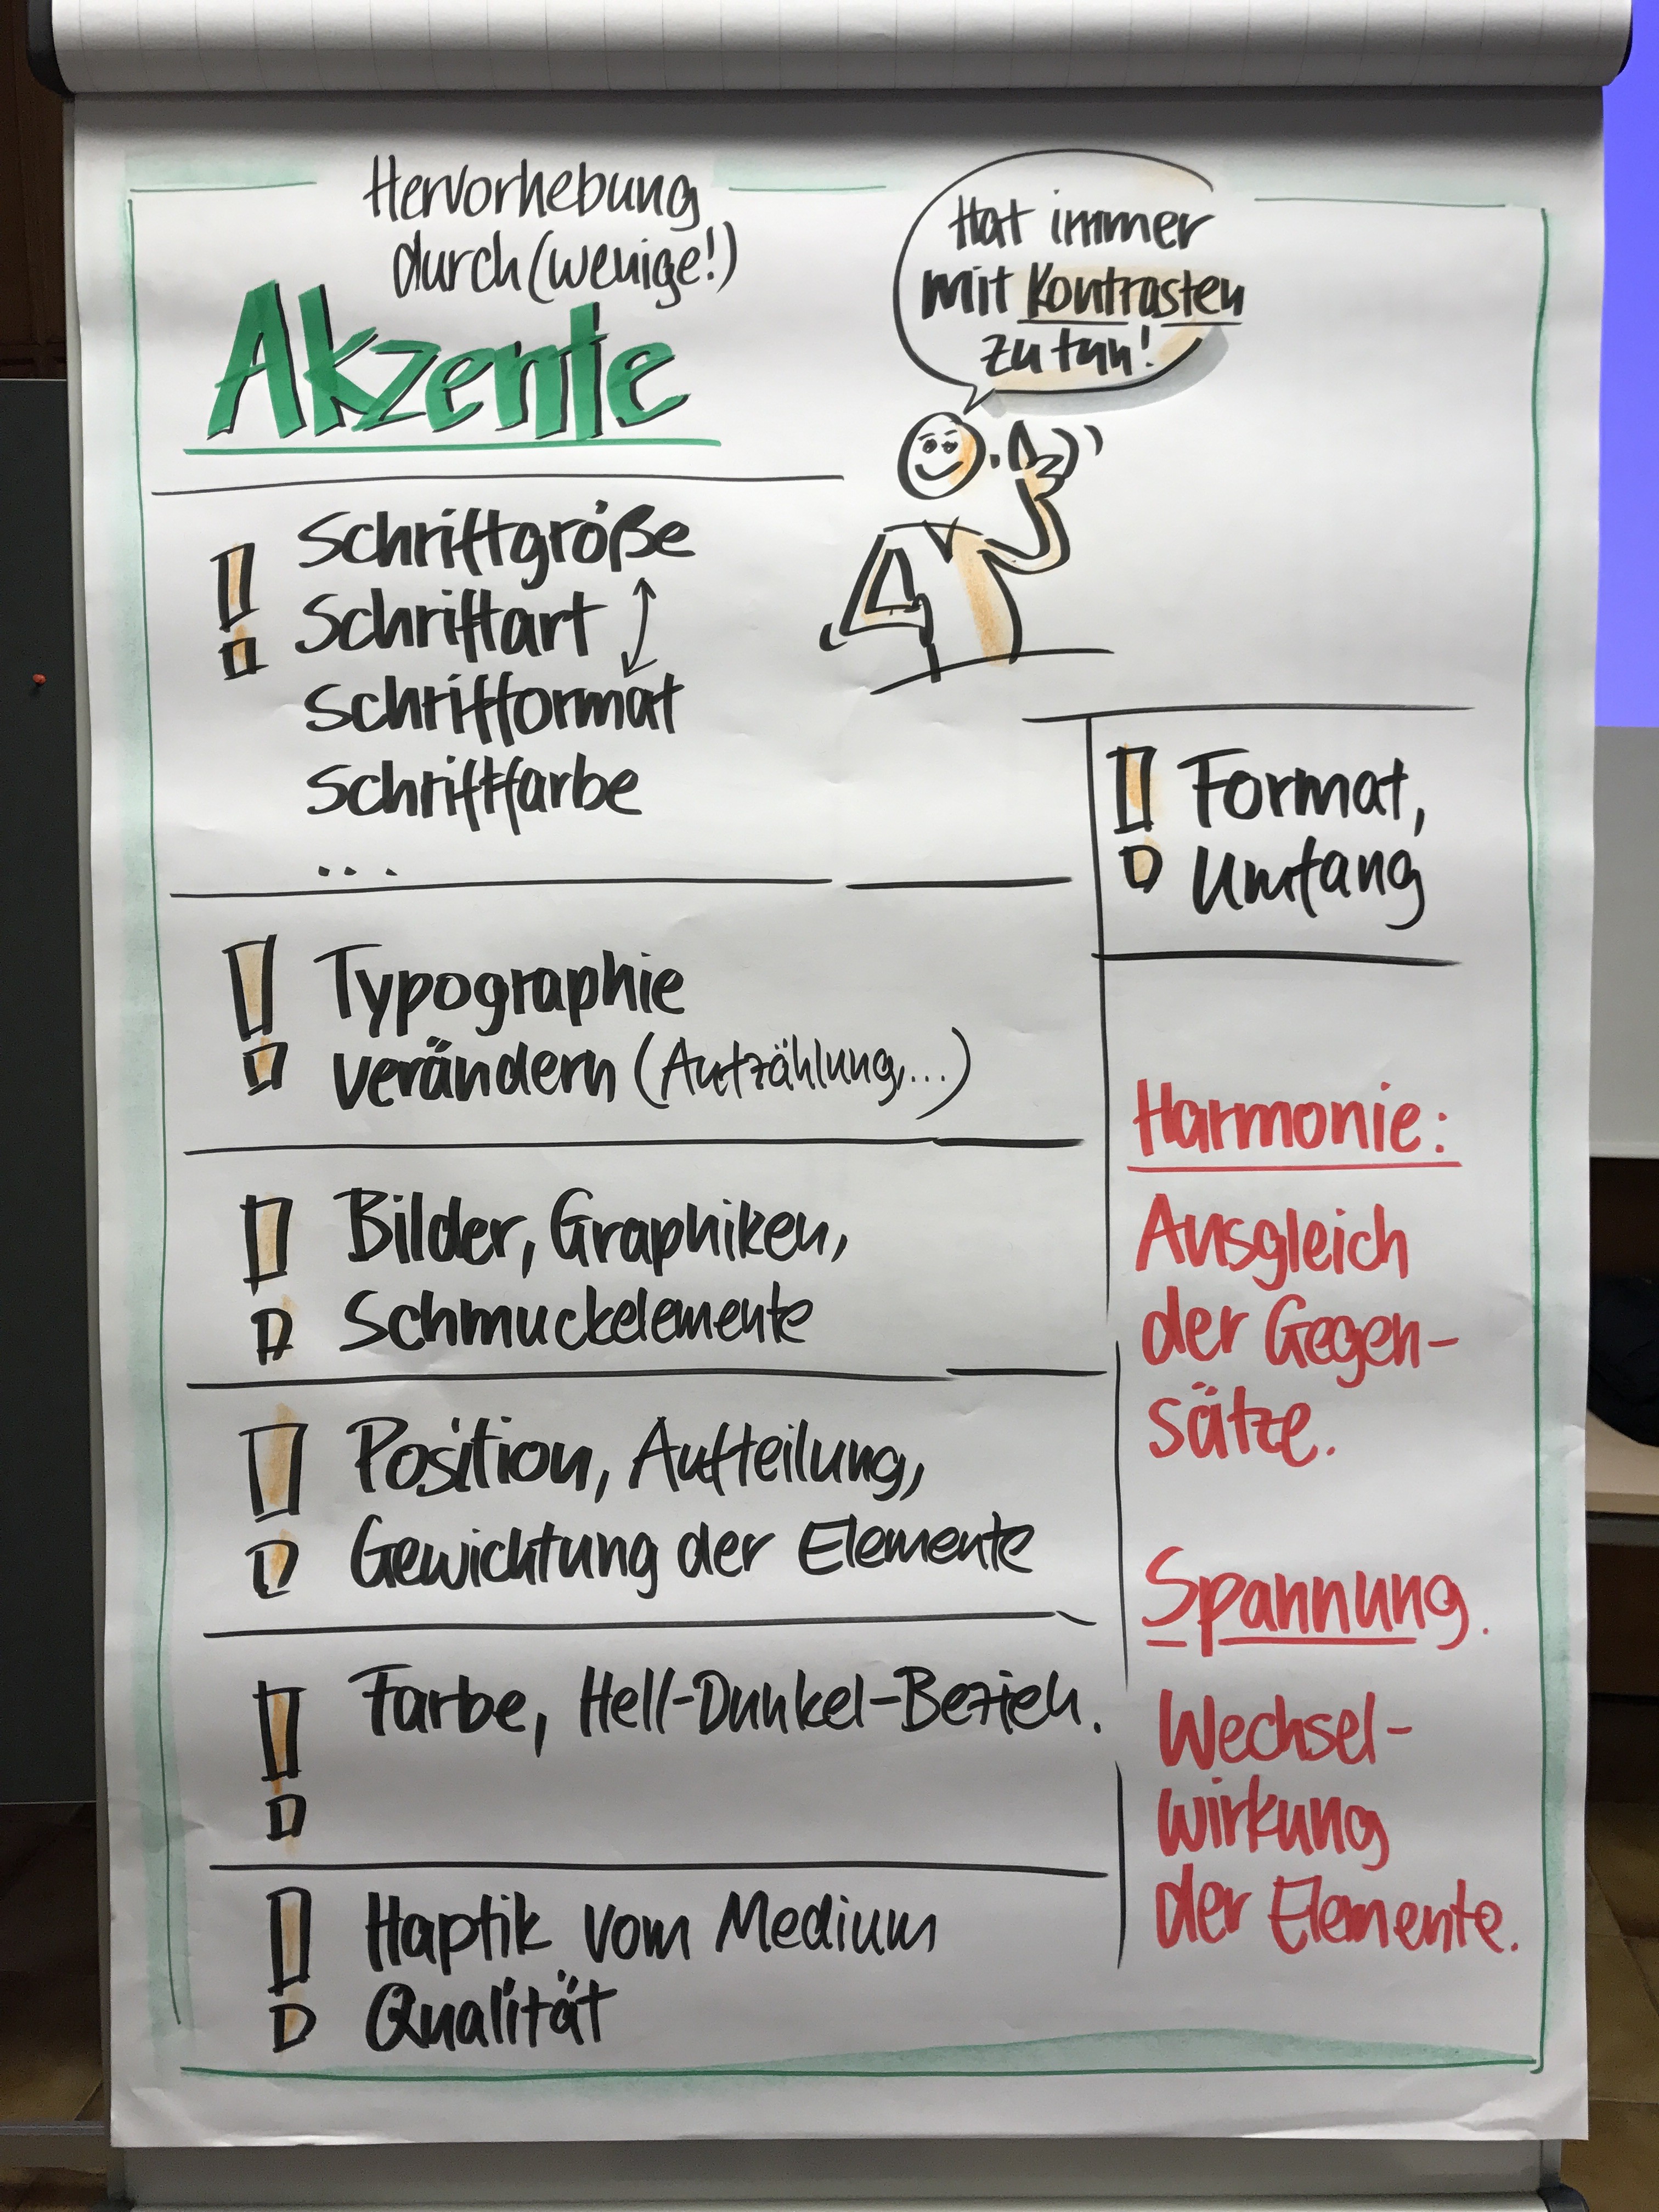 Hervorhebung
durch (wenige!)
Akzente
Hat immer
mit Kontrasten
zu tun!
! Schriftgröße
Schriftart
Schrifformat
Schriftfarbe
...
! Format,
Umfang
! Typographie
verändern (Aufzählung,...)
! Bilder, Graphiken,
Schmuckelemente
! Position, Aufteilung,
Gewichtung der Elemente
! Farbe, Hell-Dunkel-Bezieh.
! Haptik vom Medium
Qualität
Harmonie:
Ausgleich
der Gegen-
sätze.
Spannung.
Wechsel-
wirkung
der Elemente.